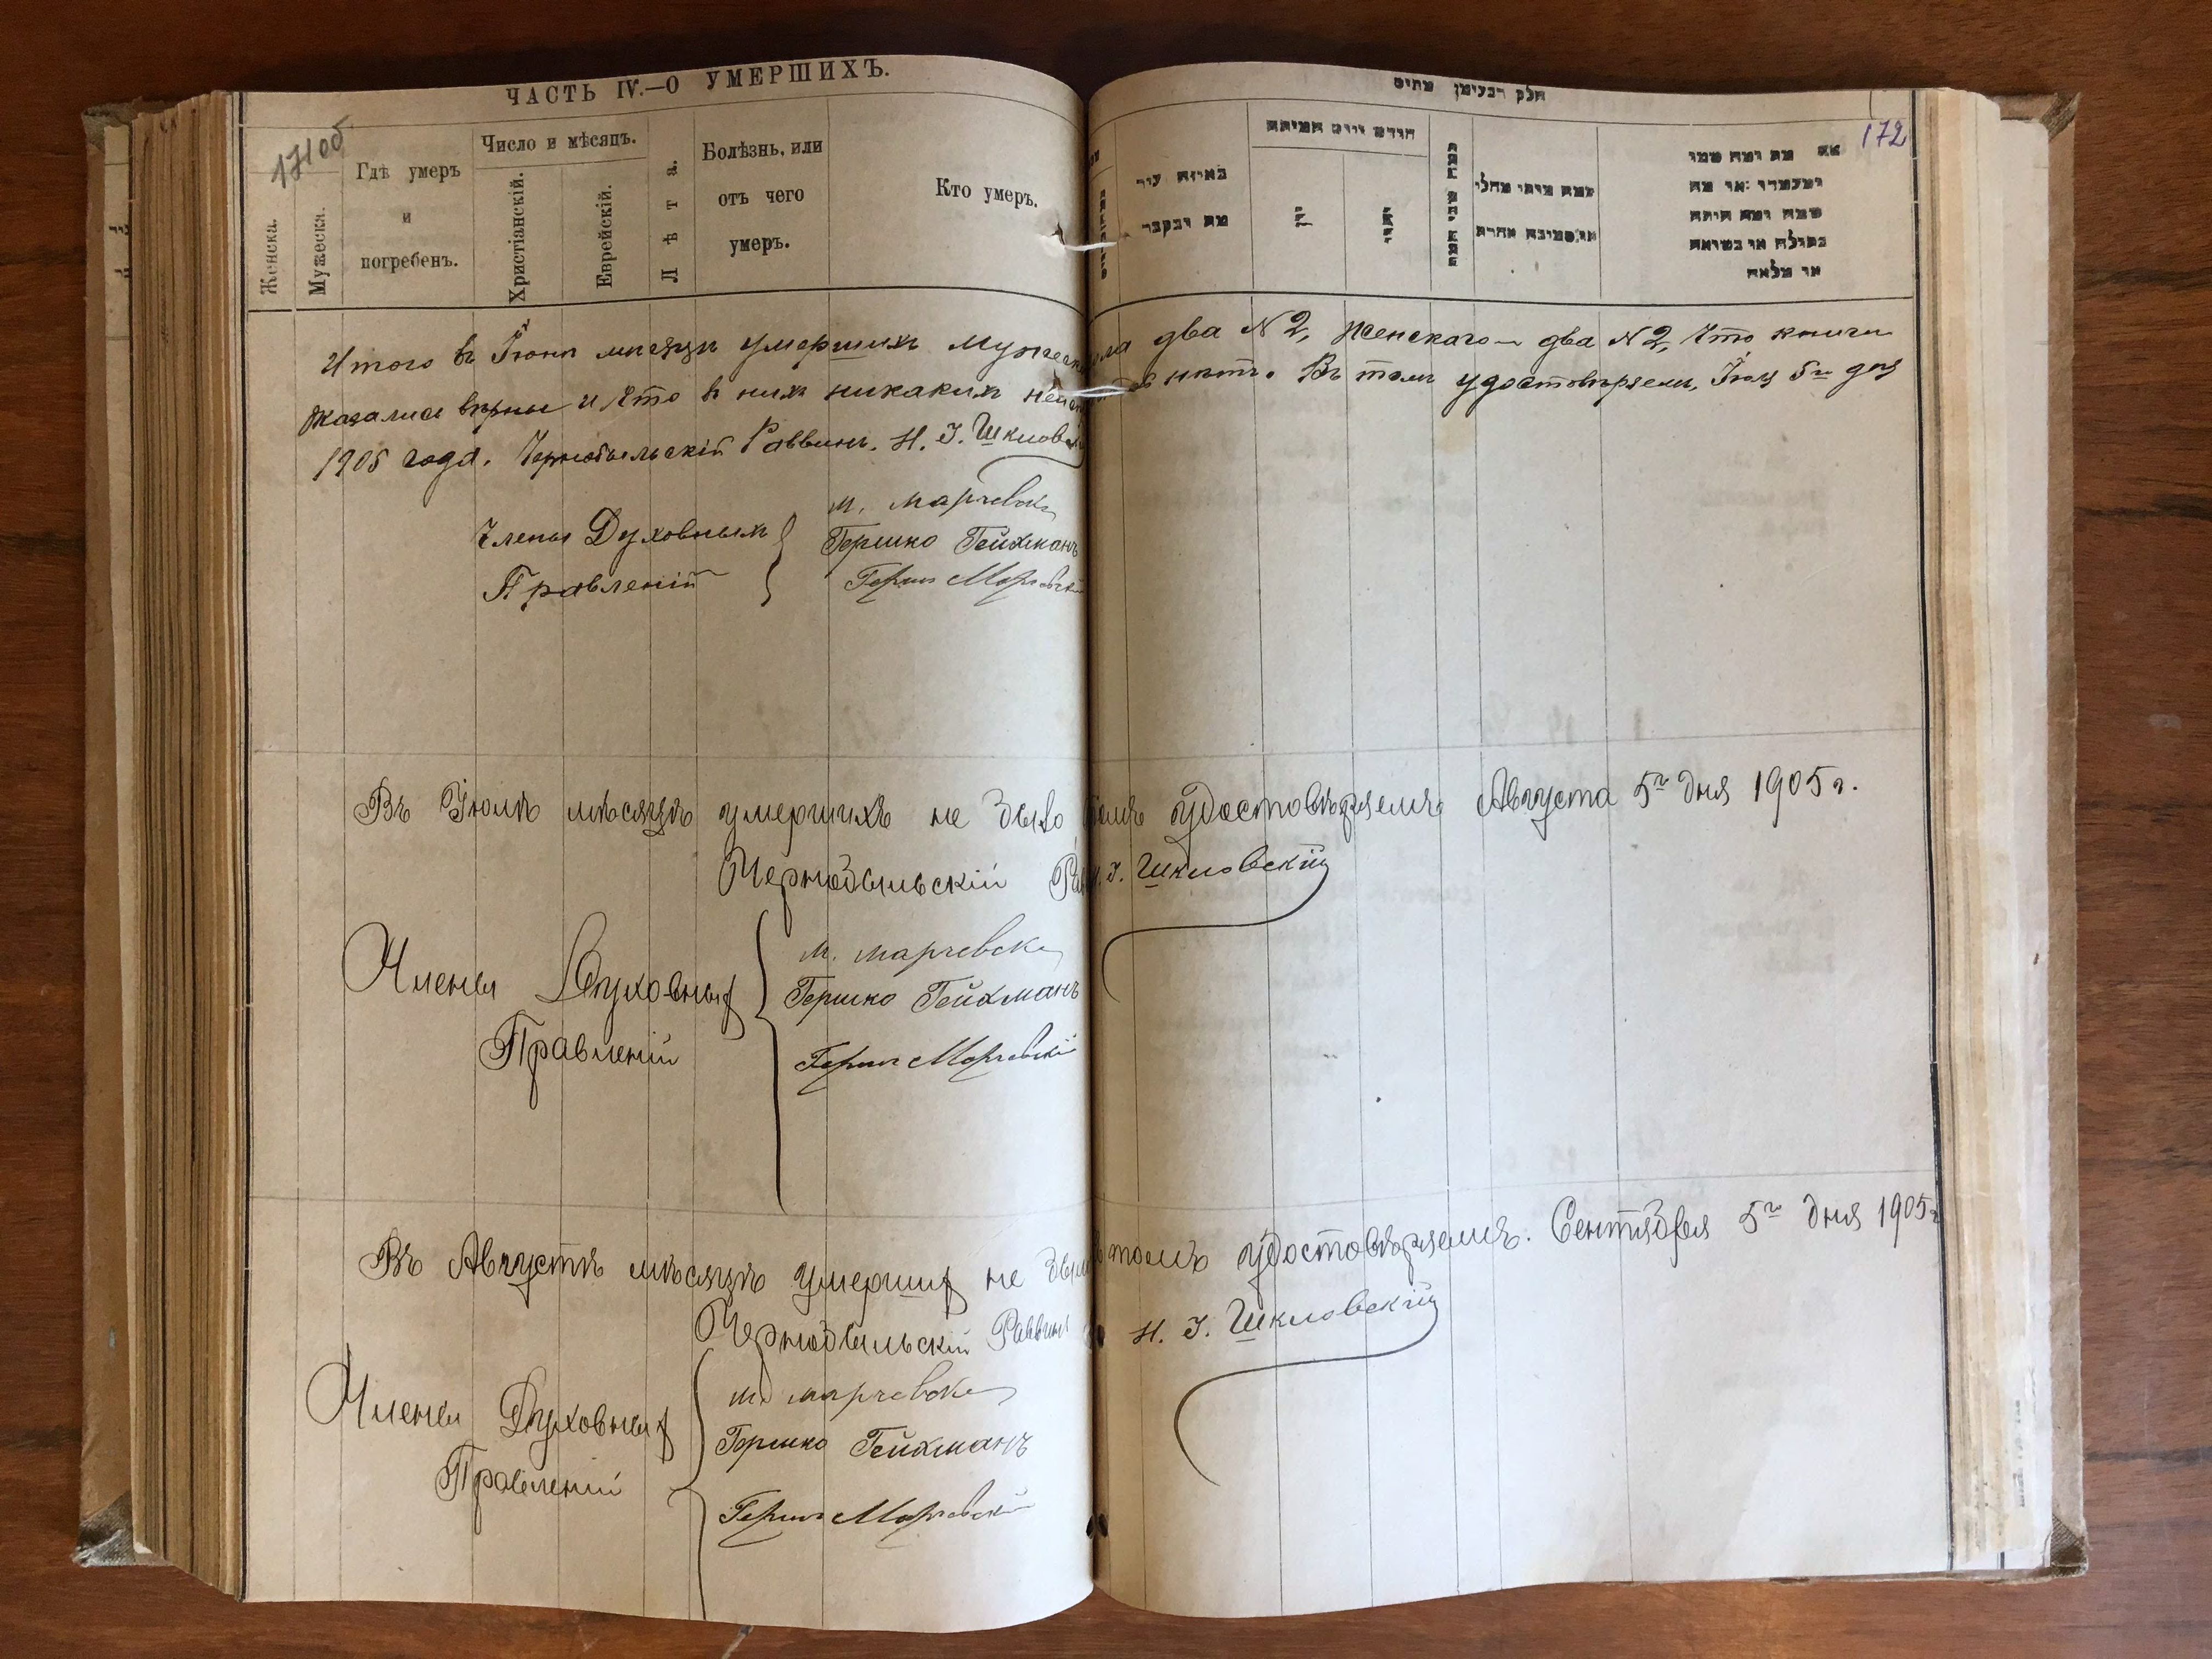 ЧАСТЬ IV.—О УМЕРШИХЪ.
171об
Женска.
Мужеска.
Гдѣ умеръ
и
погребенъ.
Число и мѣсяцъ.
Христіанскій.
Еврейскій.
Лѣта.
Болѣзнь, или
отъ чего
умеръ.
Кто умеръ.
חלק רביעי מתים
172
באיזה עיר
מת ונקבר
חודש ויום המיתה
Итого въ Іюнѣ мѣсяцѣ умершихъ мужеска пола два №2, женскаго два №2, что книги
оказались вѣрны и что въ нихъ никакихъ нѣтъ. Въ томъ удостовѣряемъ, Іюля 5го дня
1905 года. Чернобыльскій Раввинъ. Н. І. Шкловскій
Члены Духовныхъ
Правленій
М. Марчевск
Гершко Гейхманъ
Герш Марчевскій
Въ Іюлѣ мѣсяцѣ умершихъ не было въ томъ удостовѣряемъ Августа 5го дня 1905 г.
Чернобыльскій Н. І. Шкловскій
Члены Духовныхъ
Правленій
М. Марчевск
Гершко Гейхманъ
Герш Марчевскій
Въ Августѣ мѣсяцѣ умершихъ не было въ томъ удостовѣряемъ. Сентября 5го дня 1905 г
Чернобыльскій Раввинъ Н. І. Шкловскій
Члены Духовныхъ
Правленій
М. Марчевск
Гершко Гейхманъ
Герш Марчевскій